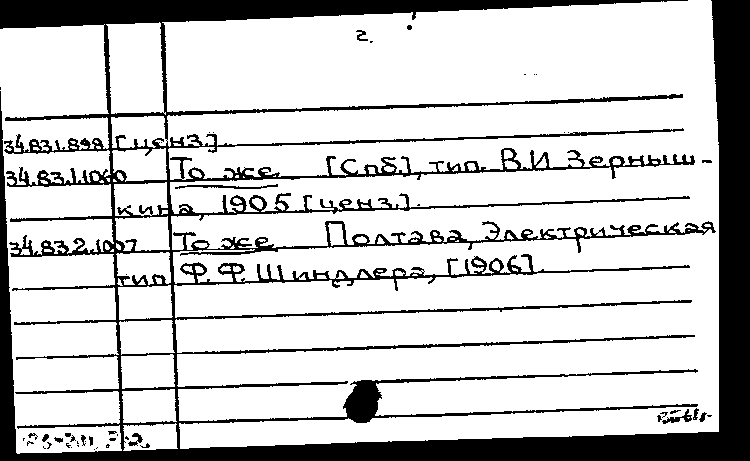 2.
34.83.1.898 [ценз.]
34.83.1.1060 То же [Спб.], тип. В.И Зерныш-
кина, 1905 [ценз.].
34.83.2.1007 То же Полтава, Электрическая
тип Ф.Ф. Шиндлера, [1906].